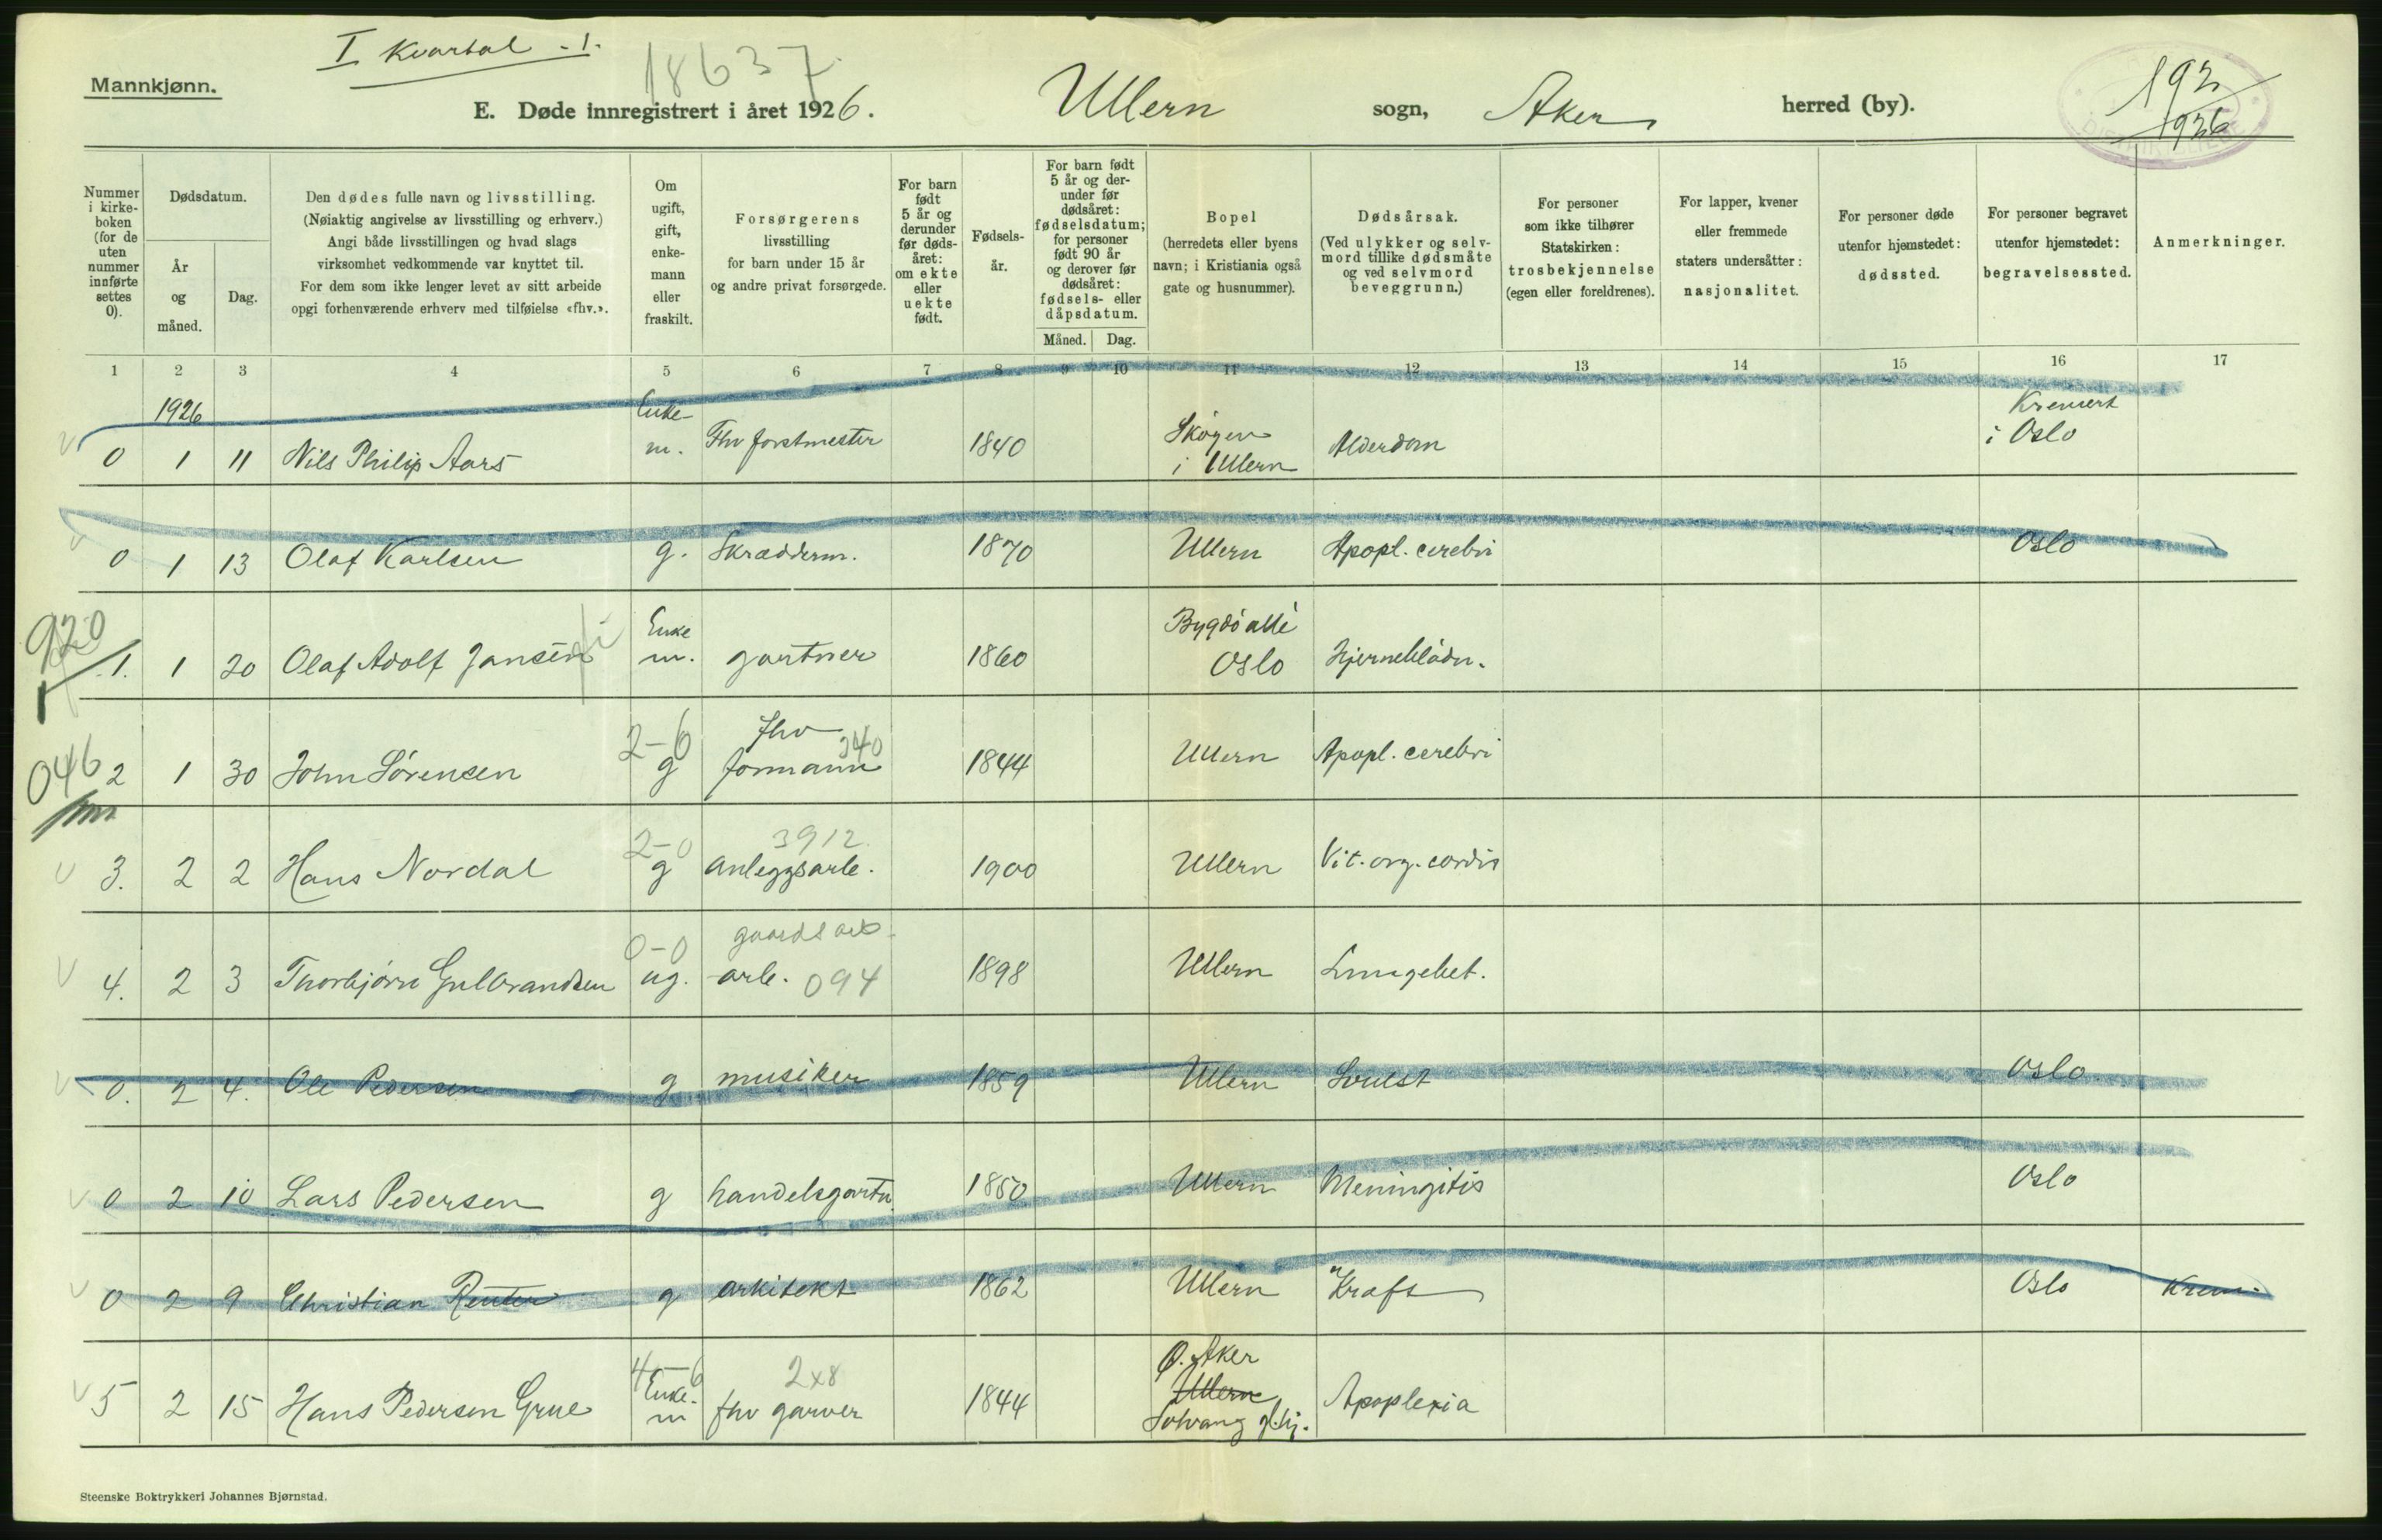 I Kvartal - 1.
18637
Mannkjønn.
E. Døde innregistrert i året 1926. Ullern sogn, Aker herred (by).
192
1926
Nummer i kirkeboken (for de uten nummer innførte settes 0).
Dødsdatum.
År og måned.
Dag.
Den dødes fulle navn og livsstilling.
(Nøiaktig angivelse av livsstilling og erhverv.)
Angi både livsstillingen og hvad slags
virksomhet vedkommende var knyttet til.
For dem som ikke lenger levet av sitt arbeide
opgi forhenværende erhverv med tilføielse «fhv.».
Om ugift, gift, enkemann eller fraskilt.
Forsørgerens
livsstilling
for barn under 15 år
og andre privat forsørgede.
For barn født 5 år og derunder før dødsåret: om ekte eller uekte født.
Fødselsår.
For barn født 5 år og derunder før dødsåret: fødselsdatum; for personer født 90 år og derover før dødsåret: fødsels- eller dåpsdatum.
Måned. Dag.
Bopel
(herredets eller byens
navn; i Kristiania også
gate og husnummer).
Dødsårsak.
(Ved ulykker og selvmord tillike dødsmåte
og ved selvmord
beveggrunn.)
For personer
som ikke tilhører
Statskirken:
trosbekjennelse
(egen eller foreldrenes).
For lapper, kvener
eller fremmede
staters undersåtter:
nasjonalitet.
For personer døde
utenfor hjemstedet:
dødssted.
For personer begravet
utenfor hjemstedet:
begravelsessted.
Anmerkninger.
1 2 3 4 5 6 7 8 9 10 11 12 13 14 15 16 17
1926
0 1 11 Nils Philip Aars Enke-m. Fhv forstmester 1840 Skøyen i Ullern Alderdom Kremert i Oslo
0 1 13 Olaf Karlsen g. Skrædderm. 1870 Ullern Apopl. cerebri Oslo
920
1. 1 20 Olaf Adolf Jansen Enke m. gartner 1860 Bygdø allé Oslo Hjerneblødn.
046
2 1 30 John Sørensen 2-6 g fhv formann 340 1844 Ullern Apopl. cerebri
3. 2 2 Hans Nordal 2-0 g 3912 anleggsarb. 1900 Ullern Vit. org. cordis
4. 2 3 Thorbjørn Gulbrandsen 0-0 ug. gaards arb. arb. 094 1898 Ullern Lungebet.
0. 2 4. Ole Pedersen g musiker 1859 Ullern Svulst Oslo
0 2 10 Lars Pedersen g handelsgartn. 1850 Ullern Meningitis Oslo
0 2 9 Christian Reuter g arkitekt 1862 Ullern Kraft Oslo Krem.
5 2 15 Hans Pedersen Grue 4-6 Enke-m 2x8 fhv garver 1844 Ø. Aker Ullern Solvang g.hj. Apoplexia
Steenske Boktrykkeri Johannes Bjørnstad.